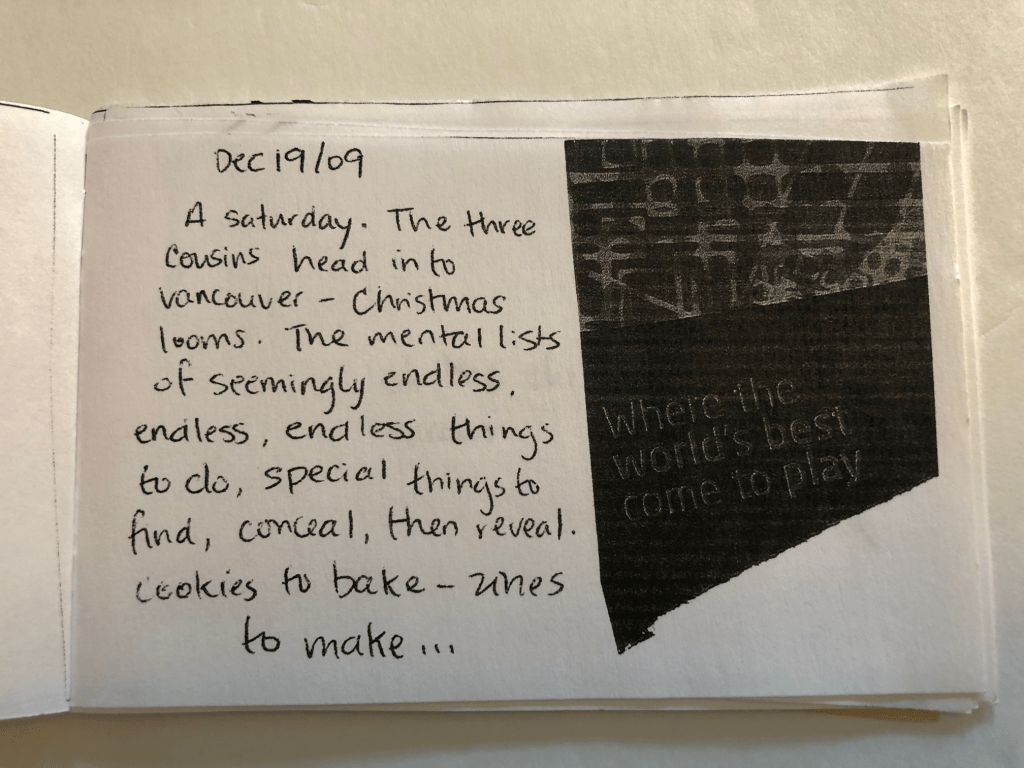 Dec 19/09
A saturday. The three
cousins head into
vancouver – Christmas
looms. The mental lists
of seemingly endless,
endless, endless things
to do, special things to
find, conceal, then reveal.
cookies to bake – zines
to make...
Where the
world's best
come to play